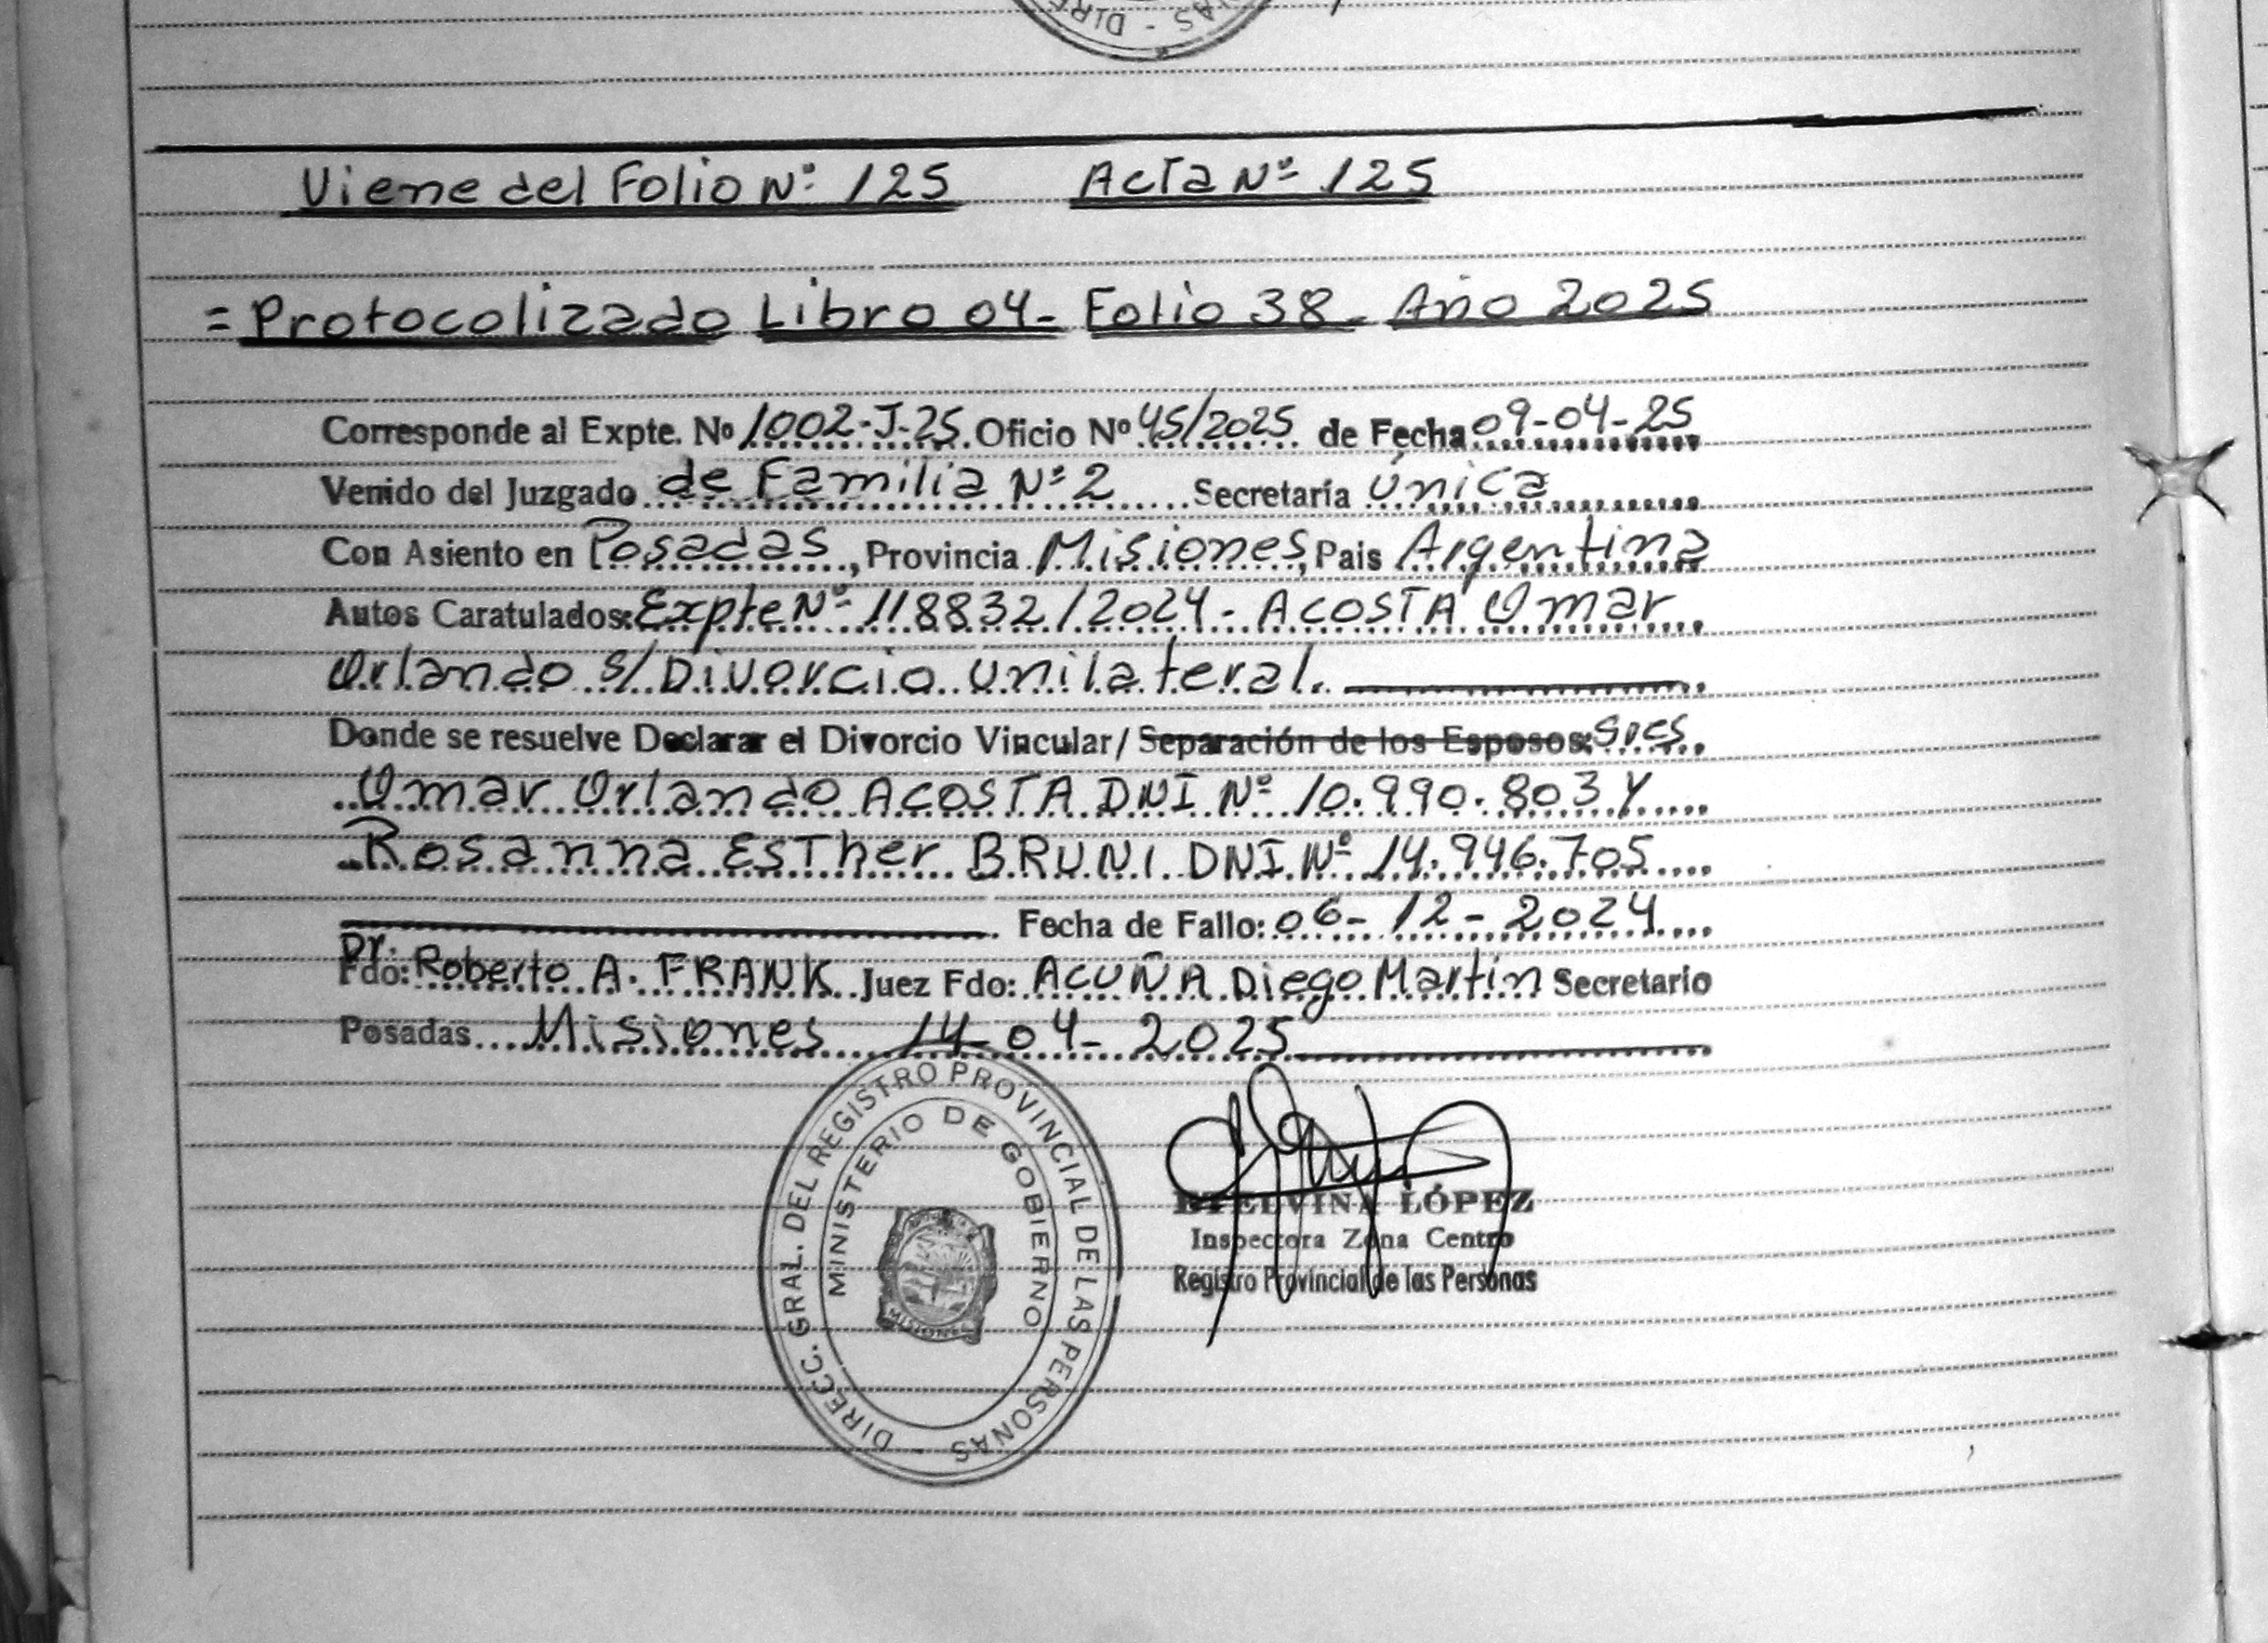 DIRE - AS
Viene del Folio Nº 125 Acta Nº 125
= Protocolizado Libro 04 - Folio 38 - Año 2025
Corresponde al Expte. Nº 1002-J-25. Oficio Nº 45/2025 de Fecha 09-04-25
Venido del Juzgado de Familia Nº 2 Secretaría Única
Con Asiento en Posadas, Provincia Misiones, Pais Argentina
Autos Caratulados: Expte Nº 118832/2024 - ACOSTA Omar
Orlando s/ Divorcio unilateral.
Donde se resuelve Declarar el Divorcio Vincular/ Separación de los Esposos: Sres
Omar Orlando ACOSTA DNI Nº 10.990.803 Y
Rosanna Esther BRUNI DNI Nº 14.946.705
Fecha de Fallo: 06-12-2024
Fdo: Dr. Roberto A. FRANK Juez Fdo: ACUÑA Diego Martín Secretario
Posadas Misiones 14-04-2025
DIRECC. GRAL. DEL REGISTRO PROVINCIAL DE LAS PERSONAS -
MINISTERIO DE GOBIERNO
MISIONES
LÓPEZ
Inspectora Zona Centro
Registro Provincial de las Personas